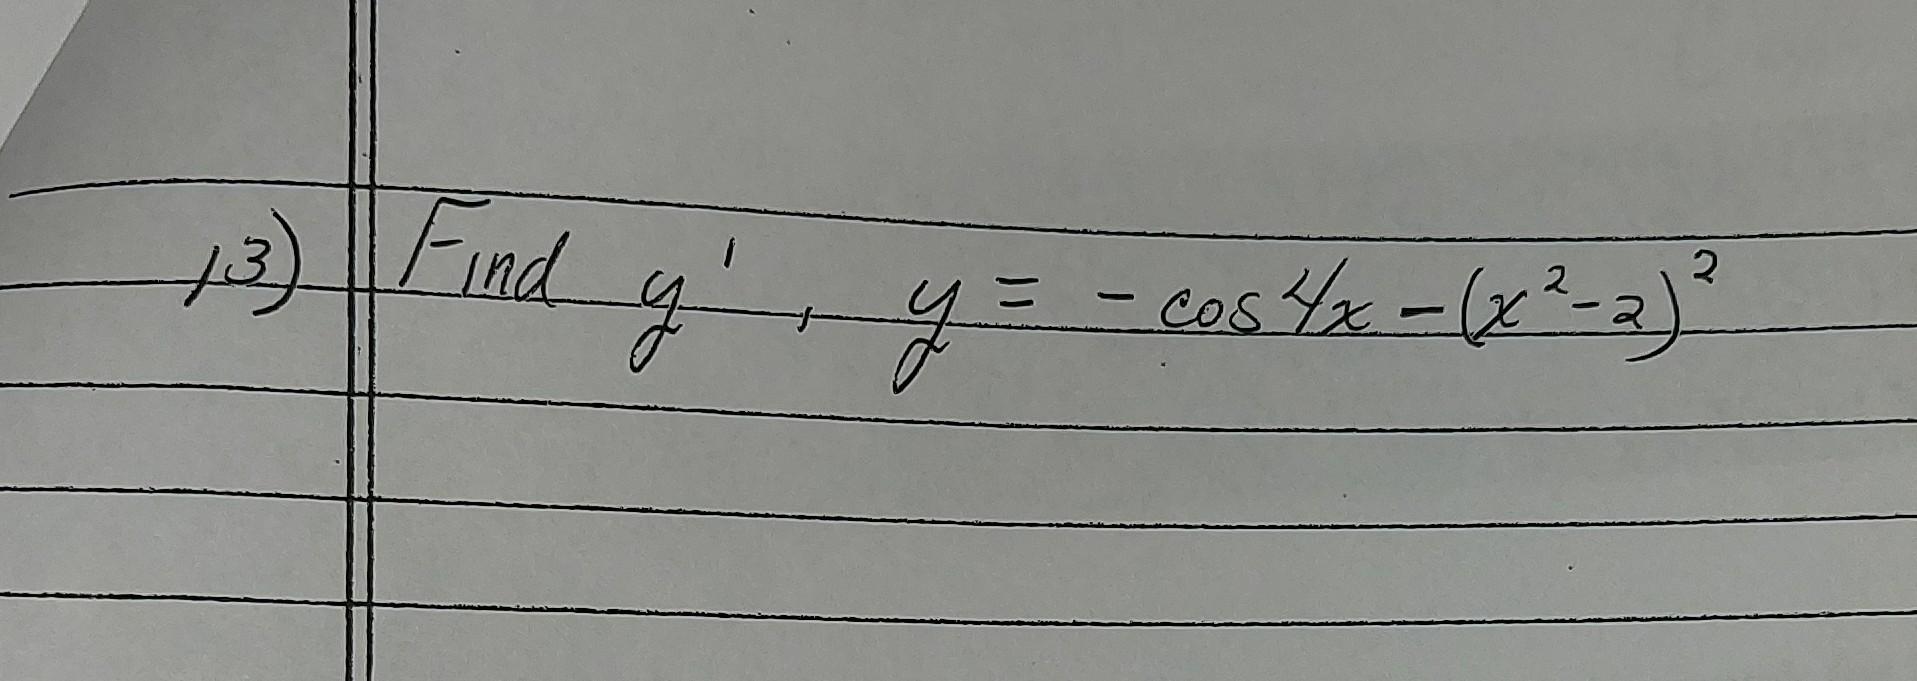 13) Find y', y = -cos 4x - (x²-2)²